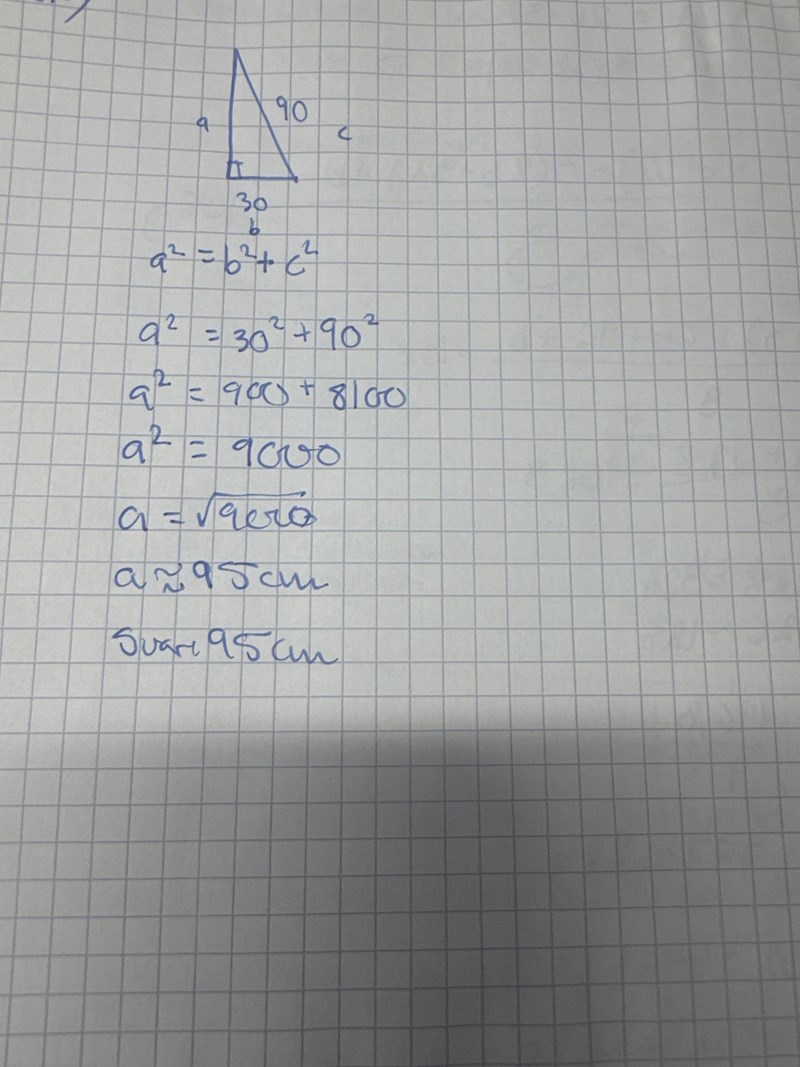 )
90
a
c
30
b
a² = b² + c²
a² = 30² + 90²
a² = 900 + 8100
a² = 9000
a = √9000
a ≈ 95 cm
Svar: 95 cm